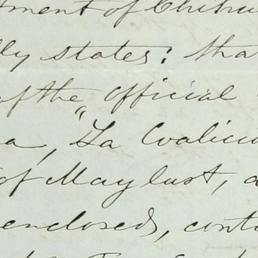 tment of Chihu
lly states: tha
of the "Official
a, "La Coalicio
of May last, a
enclosed, conti